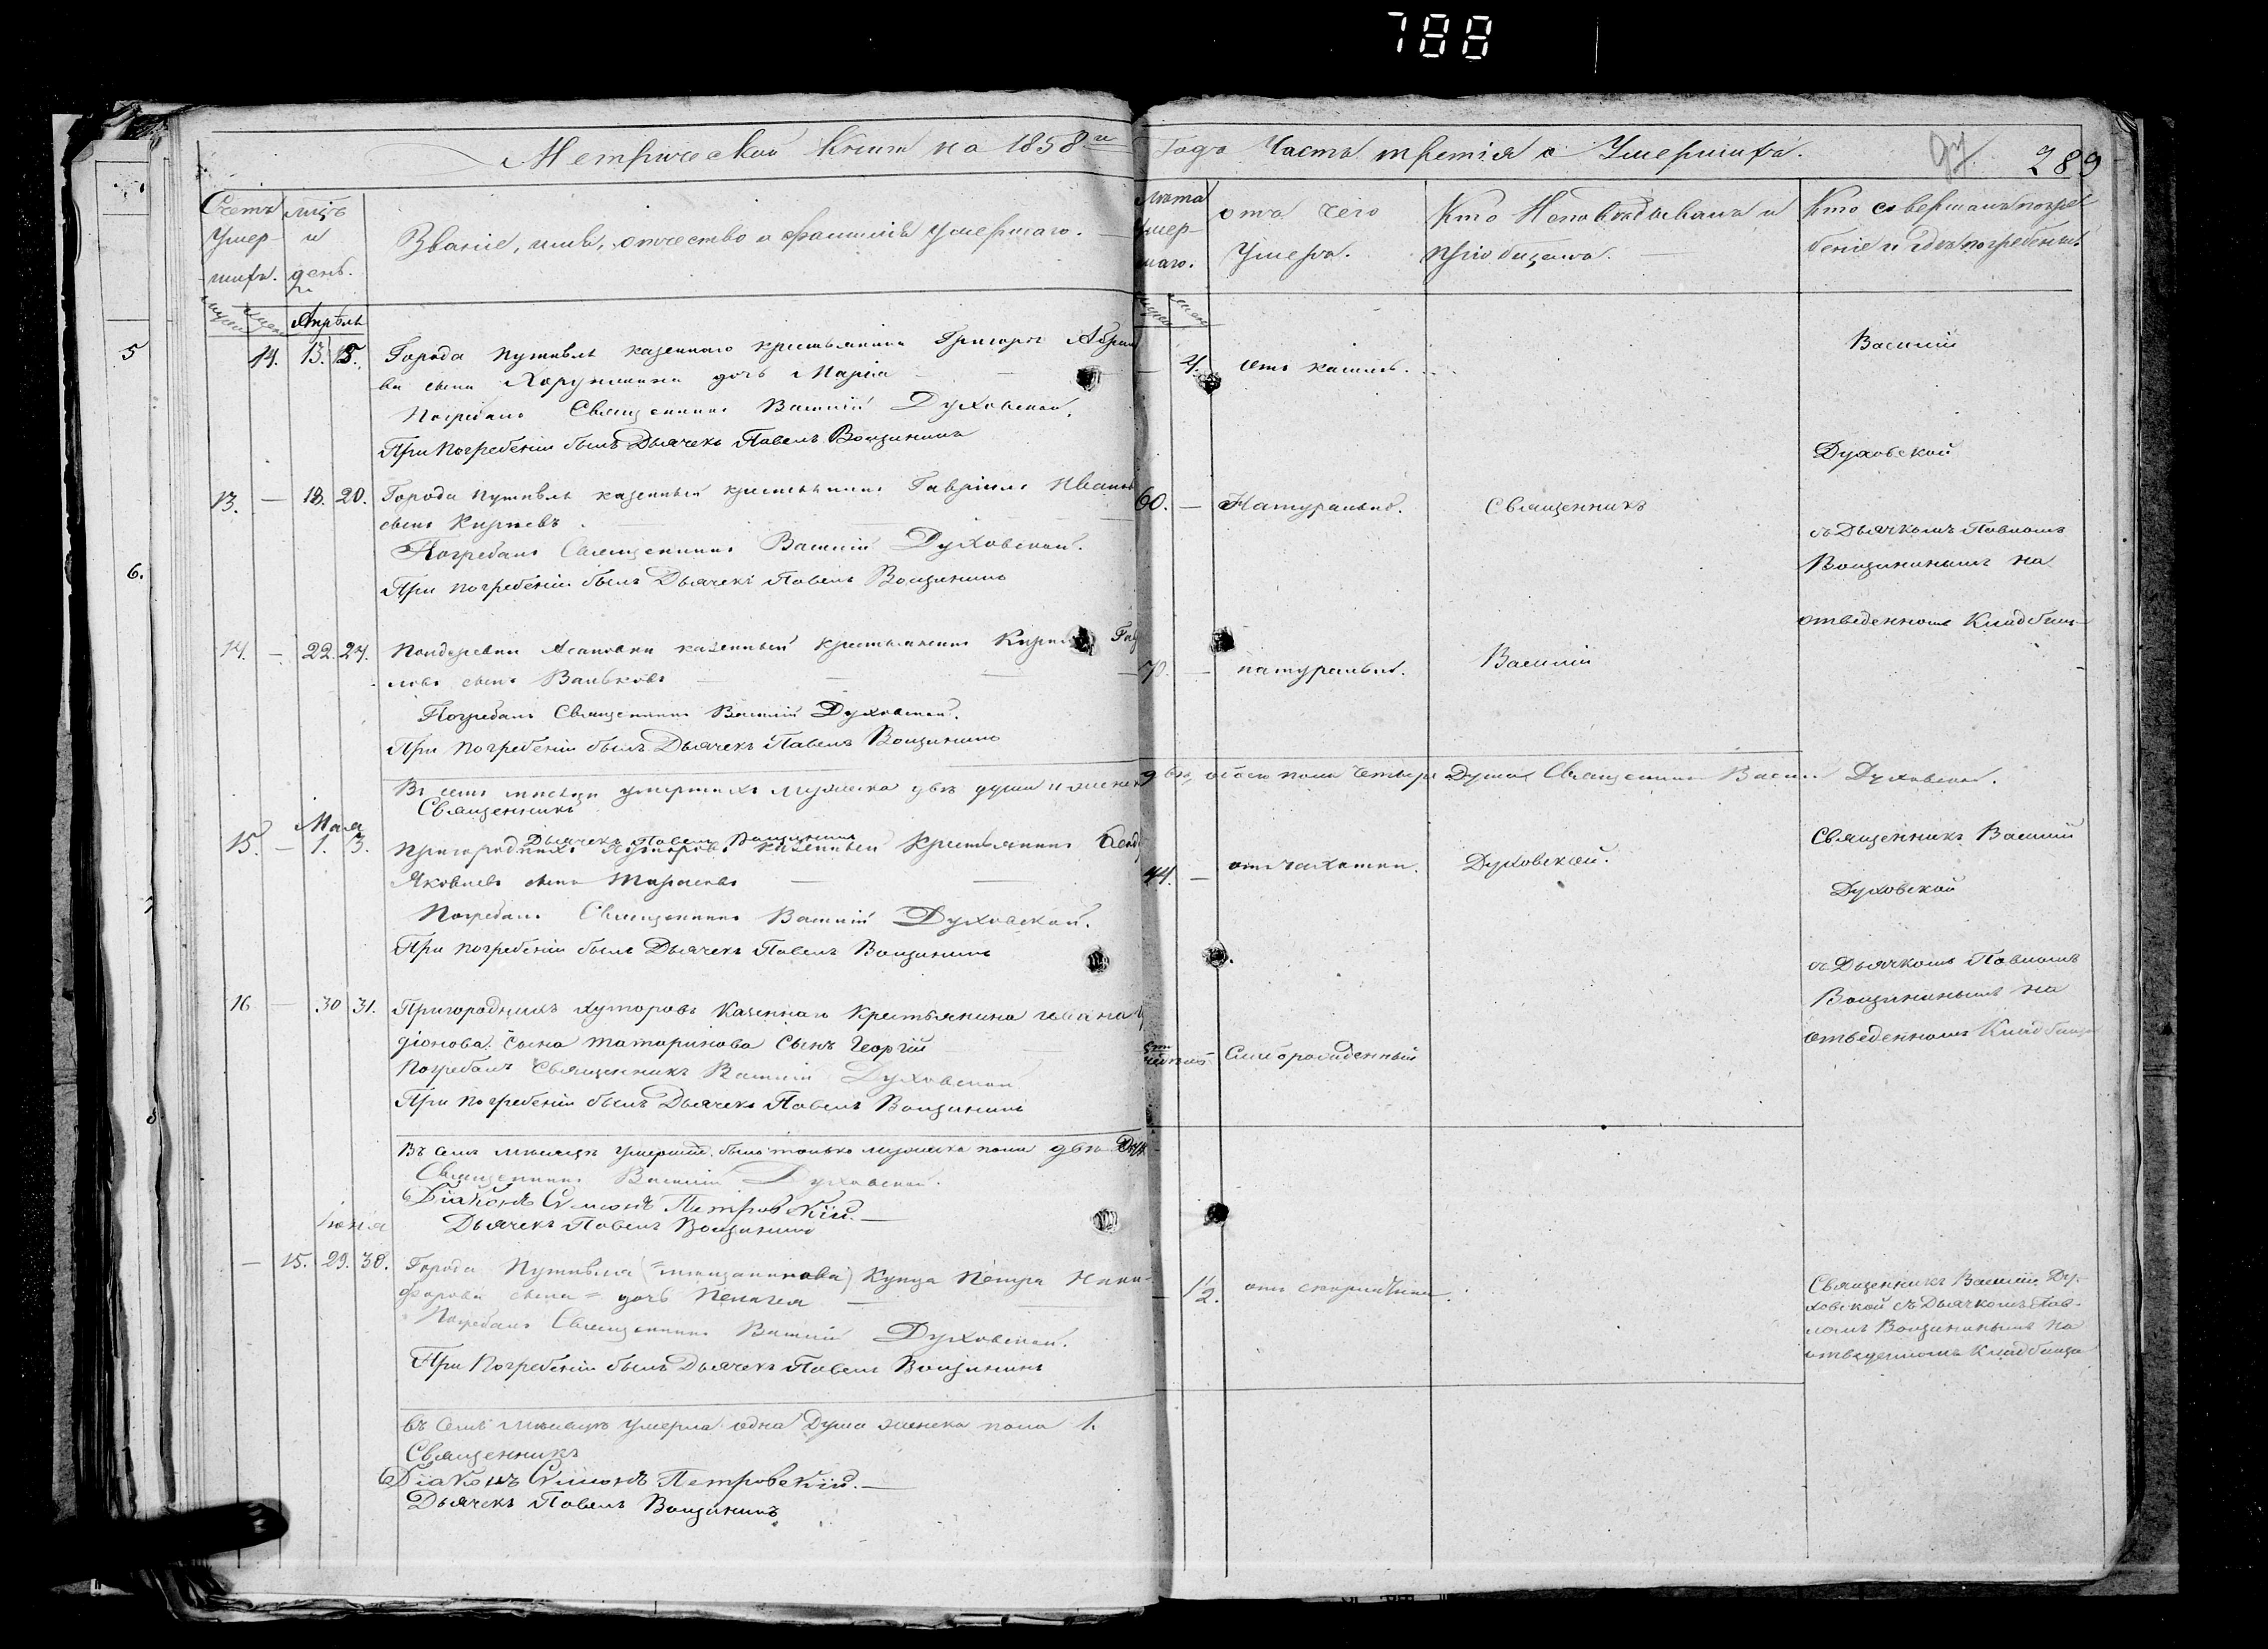 788
Метрической Книги на 1858й Года Часть третія о Умершихъ.
289
Счетъ Умер-шихъ.
мцъ и день.
Званіе, имя, отчество и фамилія умершаго.
Лѣта умер-шаго.
отъ чего Умеръ.
Кто Исповѣдывалъ и пріобщалъ.
Кто совершалъ погре
беніе и гдѣ погребены
Апрѣль
14. 13. 15. Города Путивля казеннаго крестьянина Григорія
ва сына дочь Марія
4. отъ кашля.
Погребалъ Священникъ Василій Духовской.
При Погребеніи былъ Дьячекъ Павелъ Вощининъ
13. — 18. 20. Города Путивля казенный крестьянинъ Гавріилъ Иванов
сынъ Киреевъ.
60. — Натурально. Священникъ
Погребалъ Священникъ Василій Духовской.
При погребеніи былъ Дьячекъ Павелъ Вощининъ
Василій
Духовской
съ Дьячкомъ Павломъ
Вощининымъ на
отведенномъ Кладбищ-
14. — 22. 24. казенный крестьянинъ
ловъ сынъ
70. — натурально. Василій
Погребалъ Священникъ Василій Духовской.
При погребеніи былъ Дьячекъ Павелъ Вощининъ
Въ семъ мѣсяцѣ умершихъ мужеска двѣ души и женска двѣ, обоего пола четыре Души Священникъ Духовской.
Священникъ
Дьячекъ Павелъ Вощининъ
Мая
15. — 1. 3. Пригородныхъ Хуторовъ казенный крестьянинъ
Яковлевъ сынъ
44. — отъ чахотки. Духовской.
Погребалъ Священникъ Василій Духовской.
При погребеніи былъ Дьячекъ Павелъ Вощининъ
Священникъ Василій
Духовской
съ Дьячкомъ Павломъ
Вощининымъ на
отведенномъ Кладбищѣ
16 — 30 31. Пригородныхъ хуторовъ Казеннаго Крестьянина Ивана
діонова Сына Татаринова Сынъ Георгій
Слаборожденный
Погребалъ Священникъ Василій Духовской
При погребеніи былъ Дьячекъ Павелъ Вощининъ
Въ семъ мѣсяцѣ умерши было только мужеска пола двѣ
Священникъ Василій Духовской.
Діаконъ Симонъ Петровскій.
Дьячекъ Павелъ Вощининъ
Іюня
— 15. 29. 30. Города Путивля (мещанинова) Купца Петра Ники-
форова сына дочь Пелагея
1/2.
Погребалъ Священникъ Василій Духовской.
При Погребеніи былъ Дьячекъ Павелъ Вощининъ
Священникъ Василій Ду-
ховской съ Дьячкомъ Пав-
ломъ Вощининымъ на
отведенномъ Кладбищѣ
въ семъ мѣсяцѣ умерла одна Душа женска пола 1.
Священникъ
Діаконъ Симонъ Петровскій.
Дьячекъ Павелъ Вощининъ
5
6.
7
8